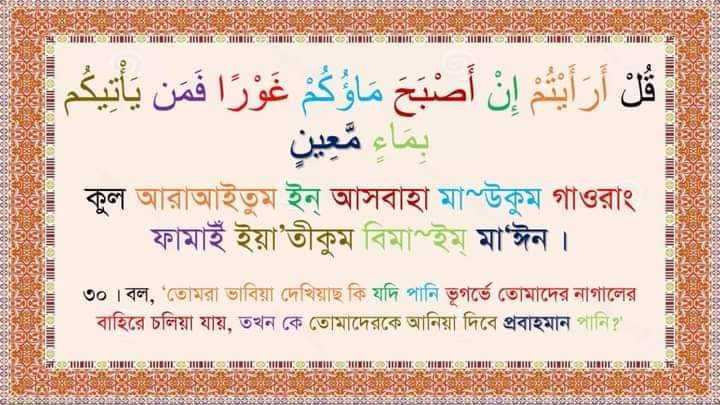 قُلْ أَرَأَيْتُمْ إِنْ أَصْبَحَ مَاؤُكُمْ غَوْرًا فَمَن يَأْتِيكُم
بِمَاءٍ مَّعِينٍ
কুল আরাআইতুম ইন্ আসবাহা মা~উকুম গাওরাং
ফামাইঁ ইয়া’তীকুম বিমা~ইম্ মা‘ঈন।
৩০ । বল, ‘তোমরা ভাবিয়া দেখিয়াছ কি যদি পানি ভূগর্ভে তোমাদের নাগালের
বাহিরে চলিয়া যায়, তখন কে তোমাদেরকে আনিয়া দিবে প্রবাহমান পানি?’